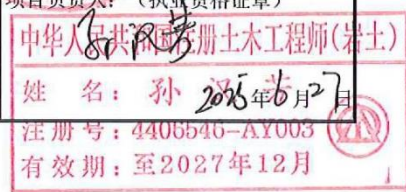 项目负责人：（执业资格证章）
中华人民共和国注册土木工程师（岩土）
姓 名：孙
2025年6月27日
注册号：4406546-AY003
有效期：至2027年12月